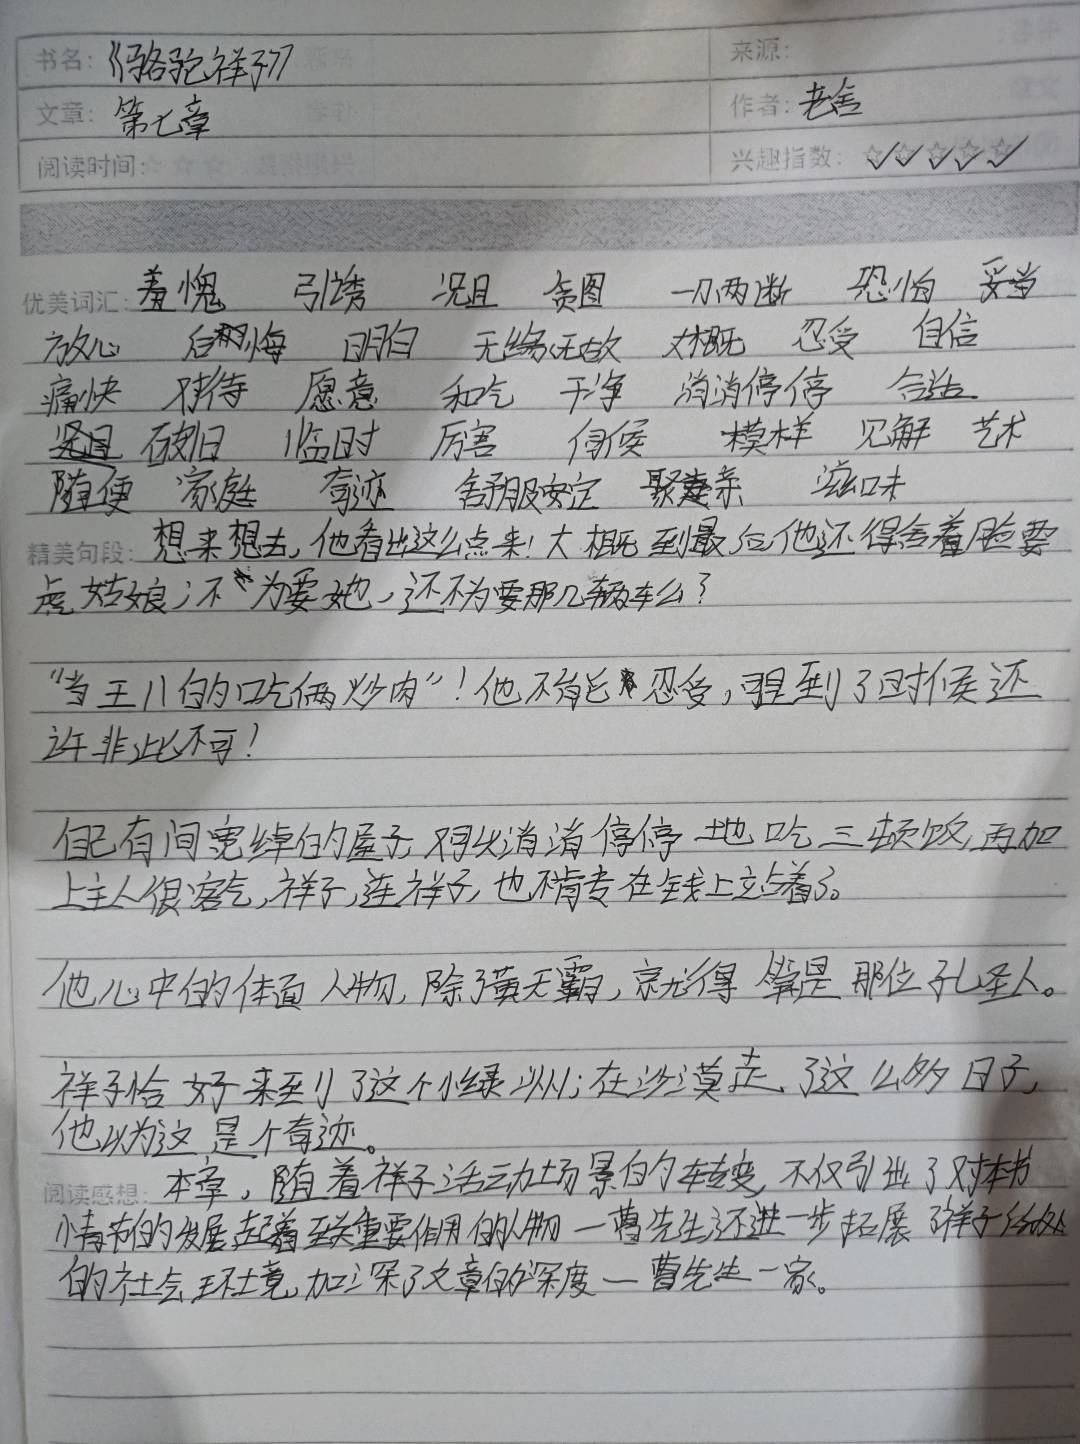 书名：《骆驼祥子》 来源：
文章：第七章 作者：老舍
阅读时间： 兴趣指数：☆☆☆☆☆
优美词汇：羞愧 引诱 况且 贪图 一刀两断 恐怕 妥当
放心 后悔 明白 无缘无故 大概 忍受 自信
痛快 对待 愿意 和气 干净 消消停停 合适
破旧 临时 厉害 伺候 模样 见解 艺术
随便 家庭 奇迹 舒服安定 聚亲 滋味
精美句段：想来想去，他看出这么点来！大概到最后他还得舍着脸要
虎姑娘；不为要她，还不为要那几辆车么？
“当王八的吃俩炒肉”！他不能忍受，可是到了时候还
许非此不可！
自己有间宽绰的屋子，又可以消消停停地吃三顿饭，再加
上主人很客气，祥子，连祥子，也不肯专在钱上站着了。
他心中的体面人物，除了黄天霸，就得算是那位孔圣人。
祥子恰好来到了这个小绿洲；在沙漠走了这么多日子，
他以为这是个奇迹。
阅读感想：本章，随着祥子活动场景的转变，不仅引出了对本书
情节的发展起着至关重要作用的人物—曹先生，还进一步拓展了祥子
的社会环境，加深了文章的深度—曹先生一家。